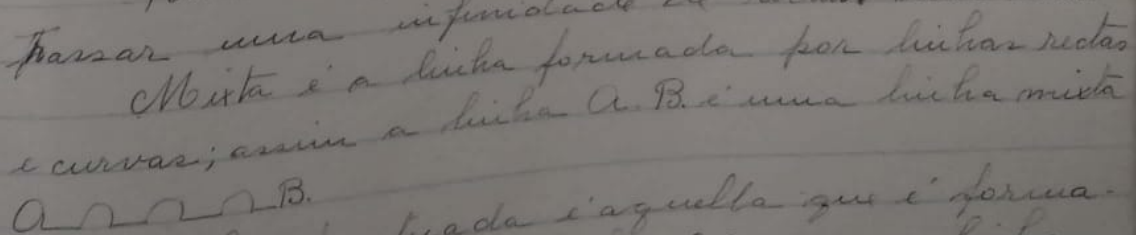 passar uma infinidade de
Mixta é a linha formada por linhas rectas
e curvas; assim a linha A. B. é uma linha mixta
A B.
é aquella que é forma-